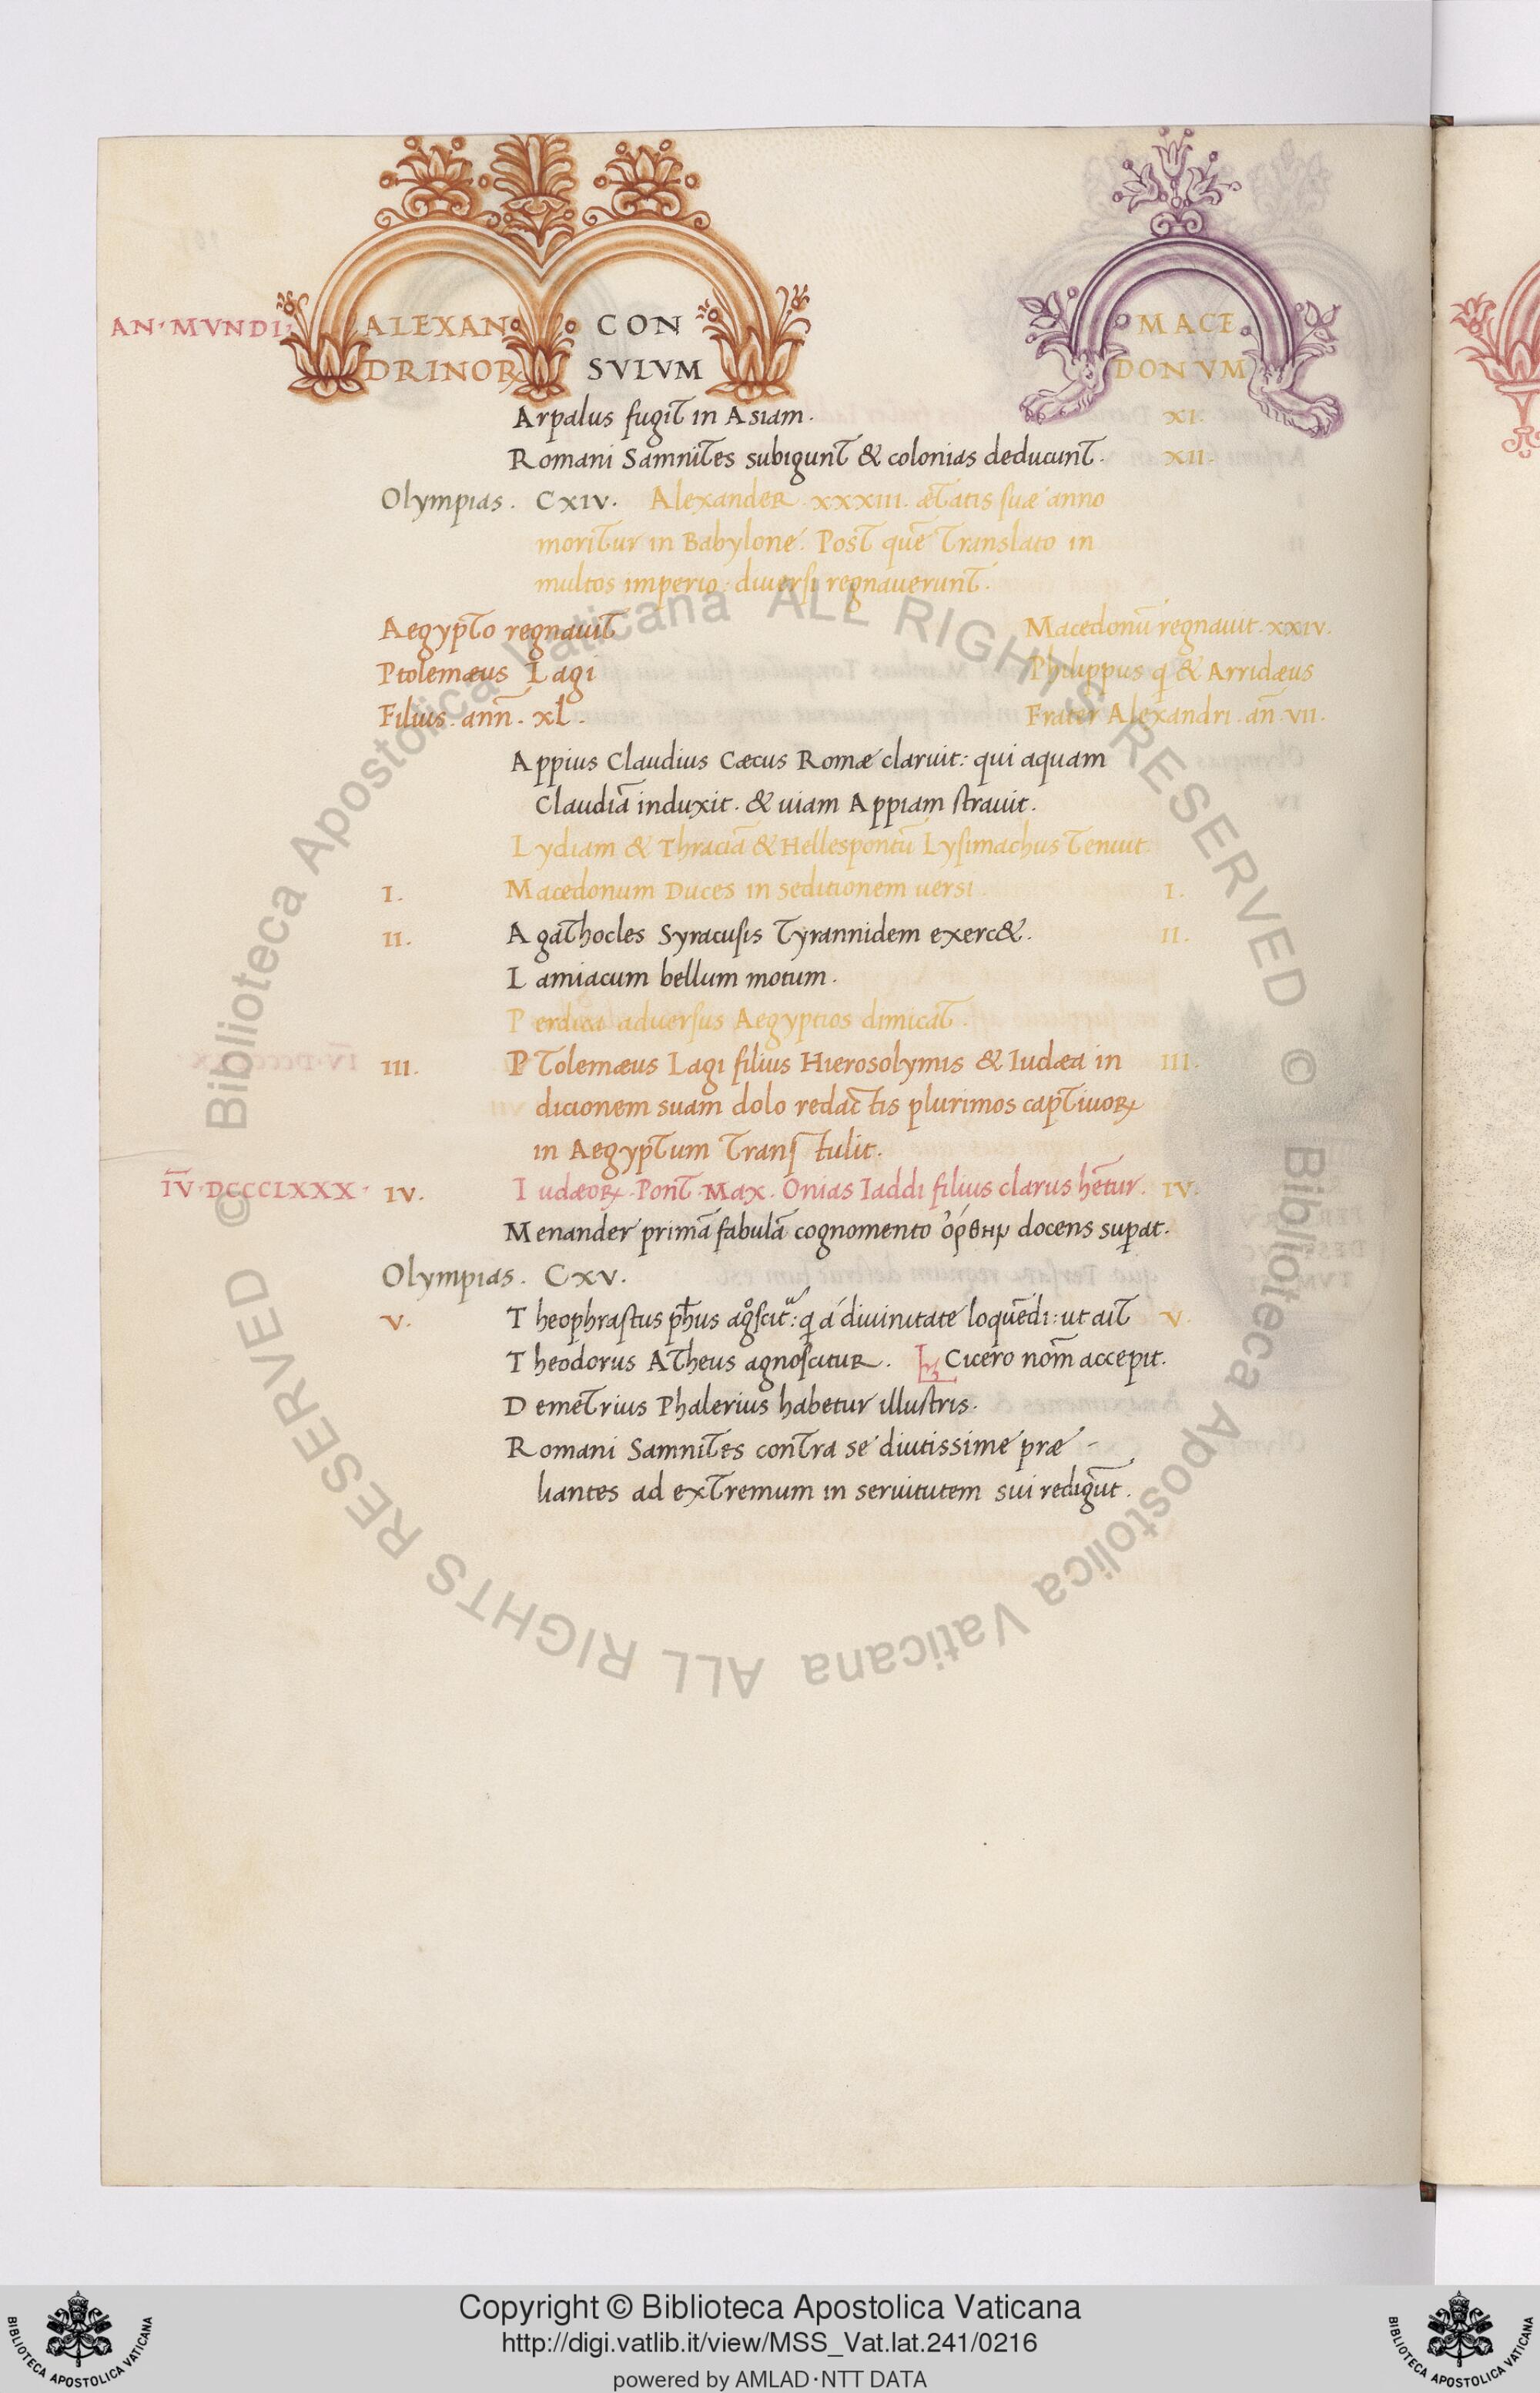 AN· MVNDI· ALEXAN CON MACE
DRINOꝜ SVLVM DONVM
Arpalus fugit in Asiam. XI.
Romani Samnites subigunt & colonias deducunt. XII.
Olympias. CXIV. Alexander .XXXIII. ætatis suæ anno
moritur in Babylone. Post quē translato in
multos imperio: diuersi regnauerunt.
Aegypto regnauit Macedonū regnauit .XXIV.
Ptolemæus Lagi Philippus q & Arridæus
Filius. ann̄. XL. Frater Alexandri. an̄. VII.
Appius Claudius Cæcus Romæ claruit: qui aquam
Claudiā induxit. & uiam Appiam strauit.
Lydiam & Thraciā & Hellespontū Lysimachus tenuit.
I. Macedonum Duces in seditionem uersi. I.
II. Agathocles Syracusis Tyrannidem exerc&. II.
Lamiacum bellum motum.
Perdica aduersus Aegyptios dimicat.
III. Ptolemæus Lagi filius Hierosolymis & Iudæa in III.
dicionem suam dolo redactis plurimos captiuoꝝ
in Aegyptum transtulit.
I̅V̅·DCCCLXXX· IV. Iudæoꝝ. Pont. Max. Onias Iaddi filius clarus hētur. IV.
Menander primā fabulā cognomento docens supat.
Olympias. CXV.
V. Theophrastus : q á diuinitate loquēdi: ut ait V.
Theodorus Atheus agnoscitur. Cicero nom̄ accepit.
Demetrius Phalerius habetur illustris.
Romani Samnites contra se diutissime præ-
liantes ad extremum in seruitutem sui redigūt.
© Biblioteca Apostolica Vaticana ALL RIGHTS RESERVED © Biblioteca Apostolica Vaticana ALL RIGHTS RESERVED
Copyright © Biblioteca Apostolica Vaticana
http://digi.vatlib.it/view/MSS_Vat.lat.241/0216
powered by AMLAD·NTT DATA
BIBLIOTECA APOSTOLICA VATICANA
BIBLIOTECA APOSTOLICA VATICANA